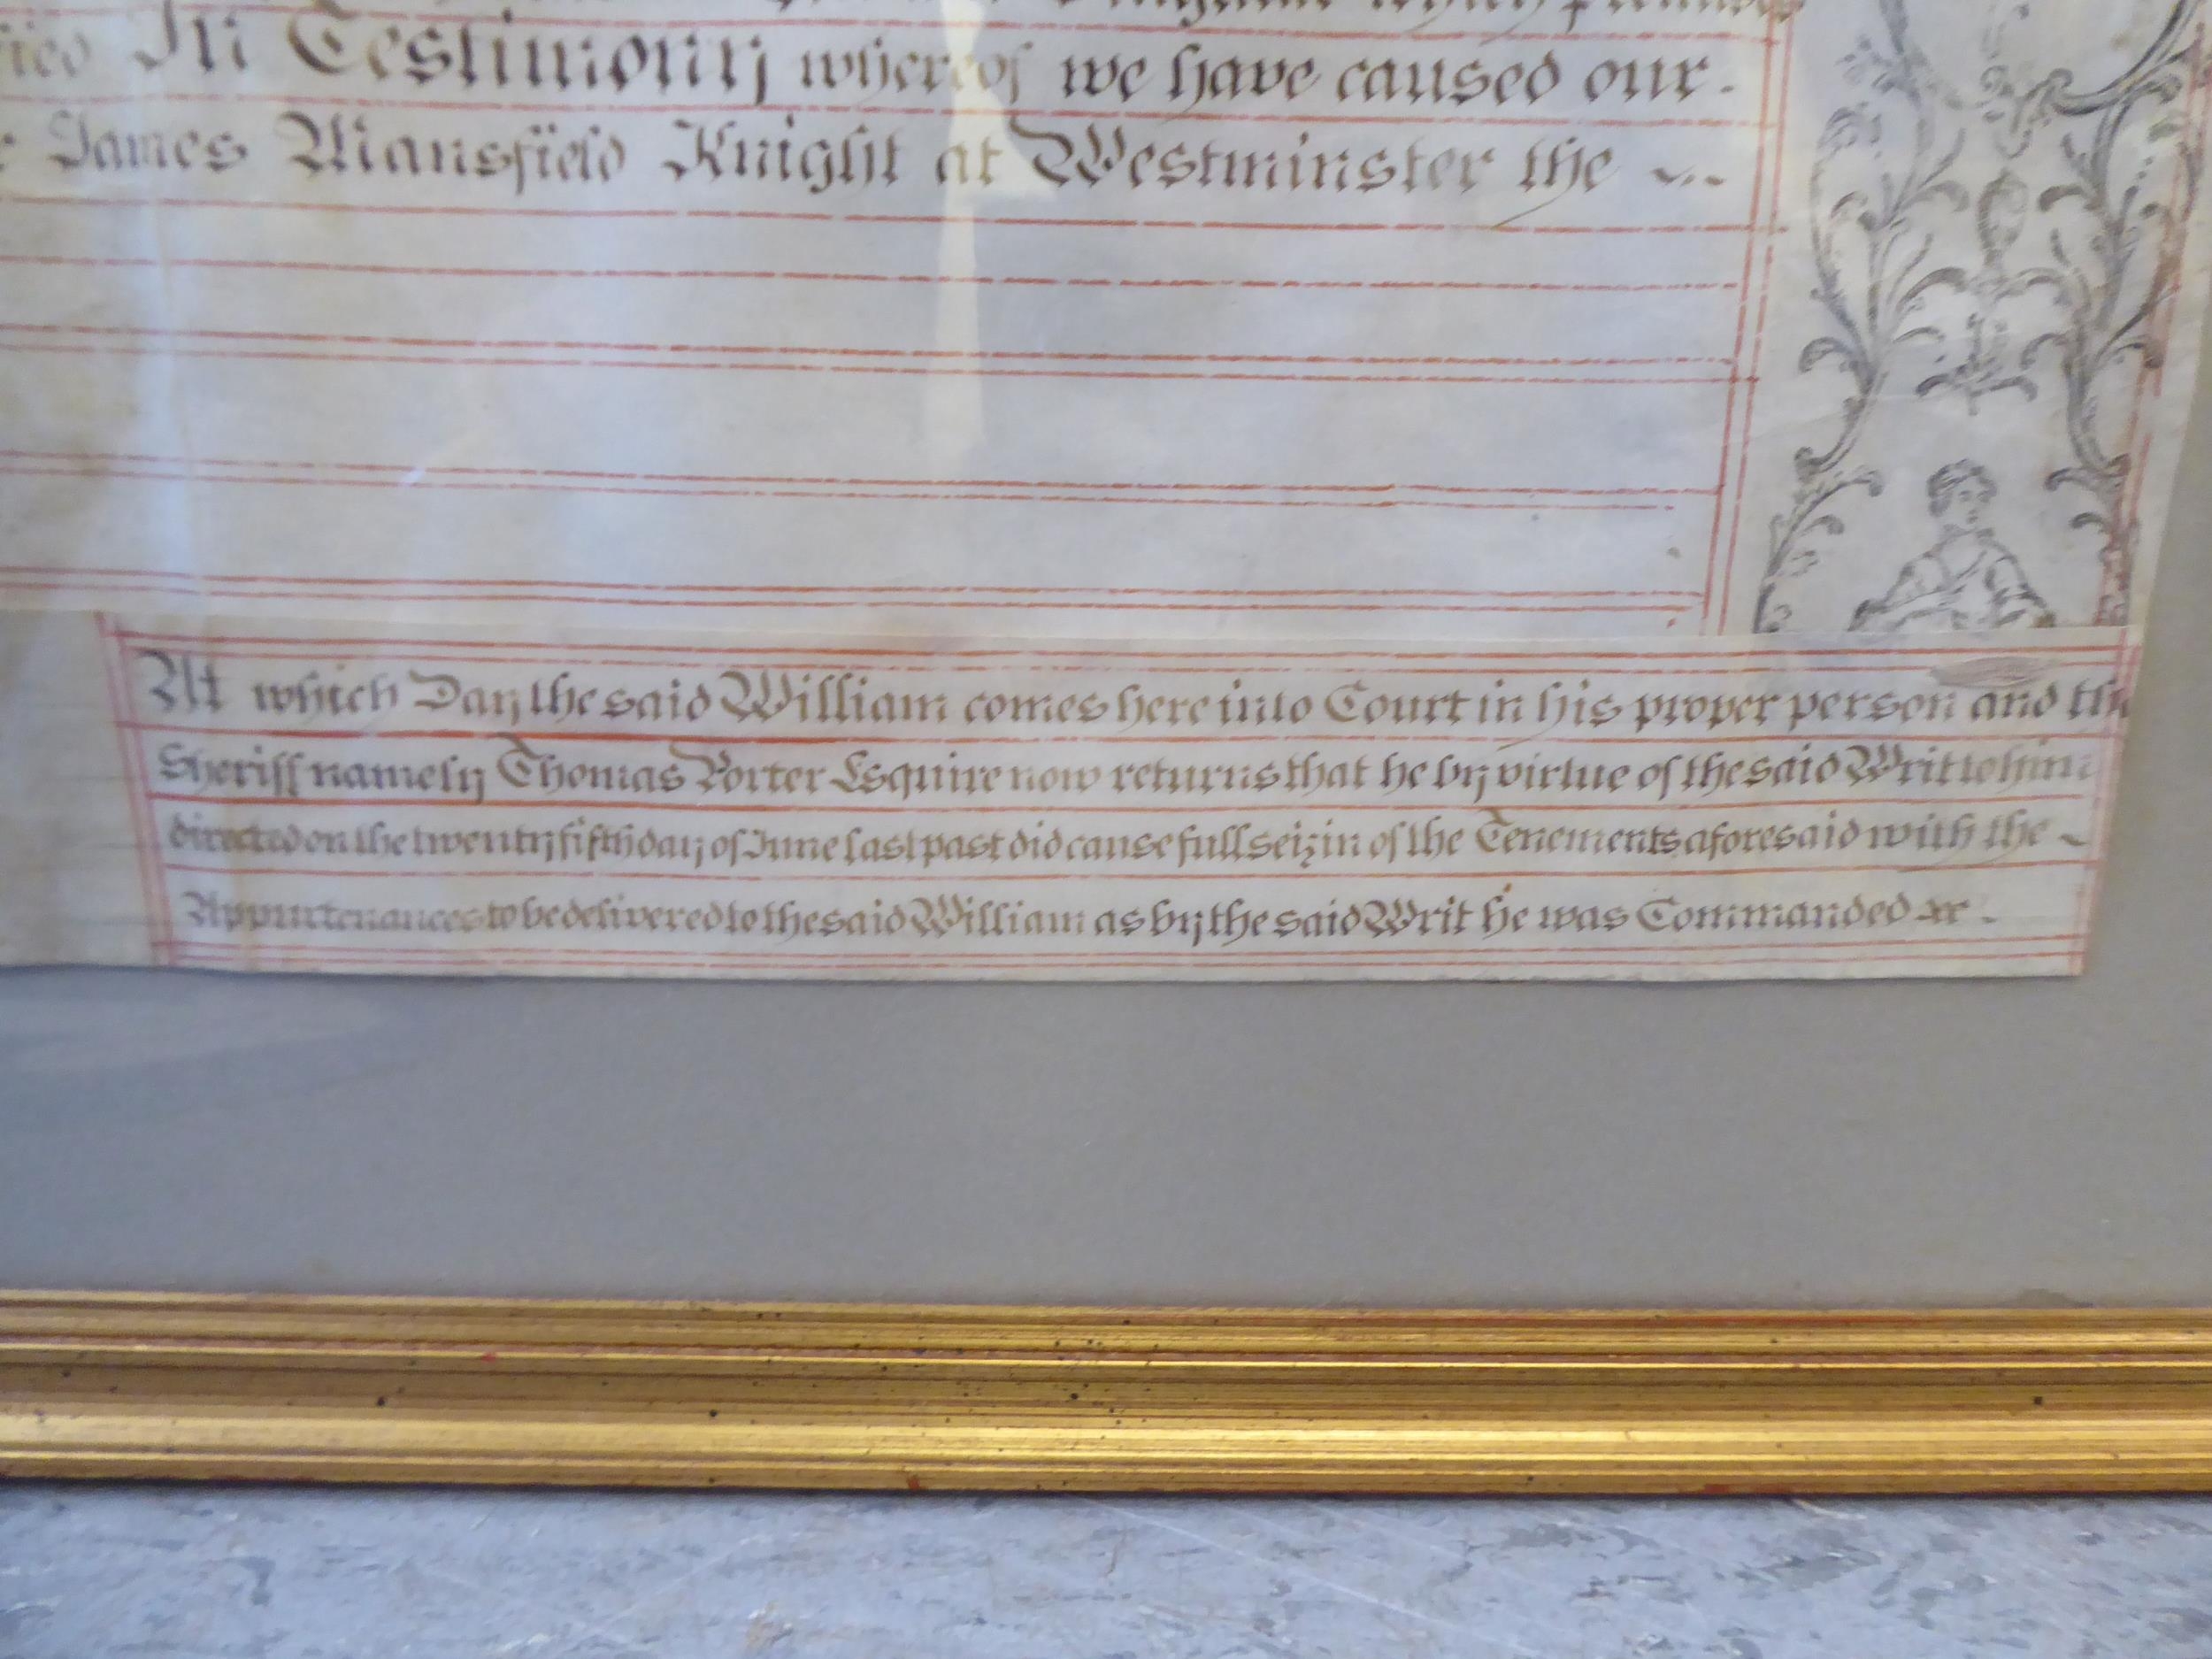 In Testimony whereof we have caused our
James Mansfield Knight at Westminster the
At which Day the said William comes here into Court in his proper person and the
Sheriff namely Thomas Porter Esquire now returns that he by virtue of the said Writ to him
directed on the twenty fifth day of June last past did cause full seizin of the Tenements aforesaid with the
Appurtenances to be delivered to the said William as by the said Writ he was Commanded &c.